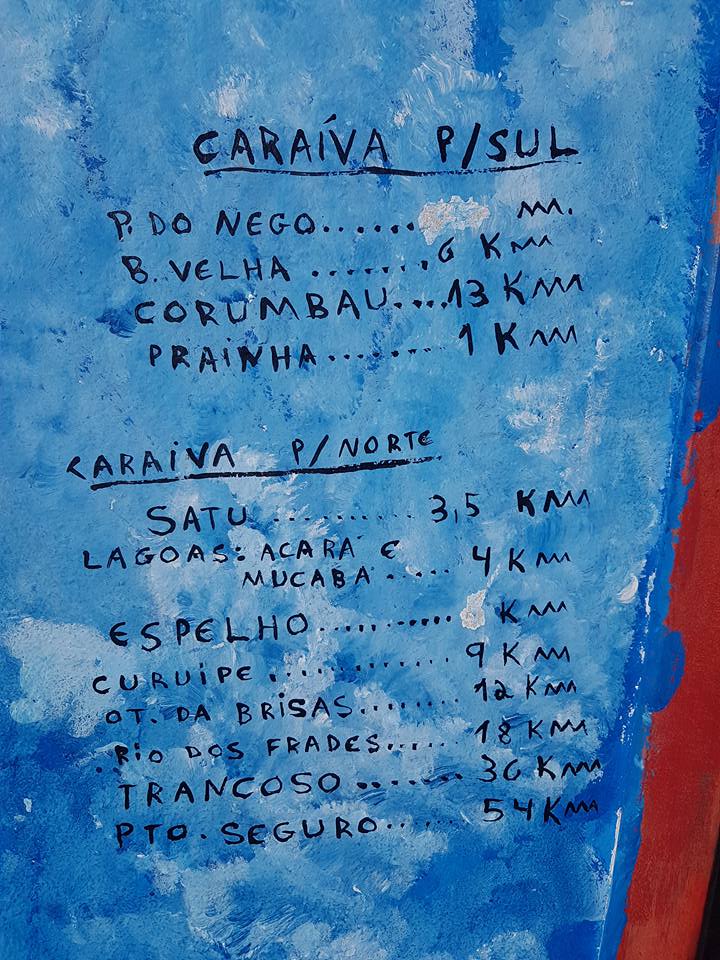 CARAÍVA P/SUL
P. DO NEGO...... M.
B. VELHA ....... 6 KM
CORUMBAU....13 KM
PRAINHA........ 1 KM
CARAIVA P/NORTE
SATU .......... 3,5 KM
LAGOAS: ACARÁ E
MUCABA ..... 4 KM
ESPELHO ........... KM
CURUÍPE ............ 9 KM
OT. DA BRISAS........ 12 KM
RIO DOS FRADES...... 18 KM
TRANCOSO ........ 36 KM
PTO. SEGURO...... 54 KM